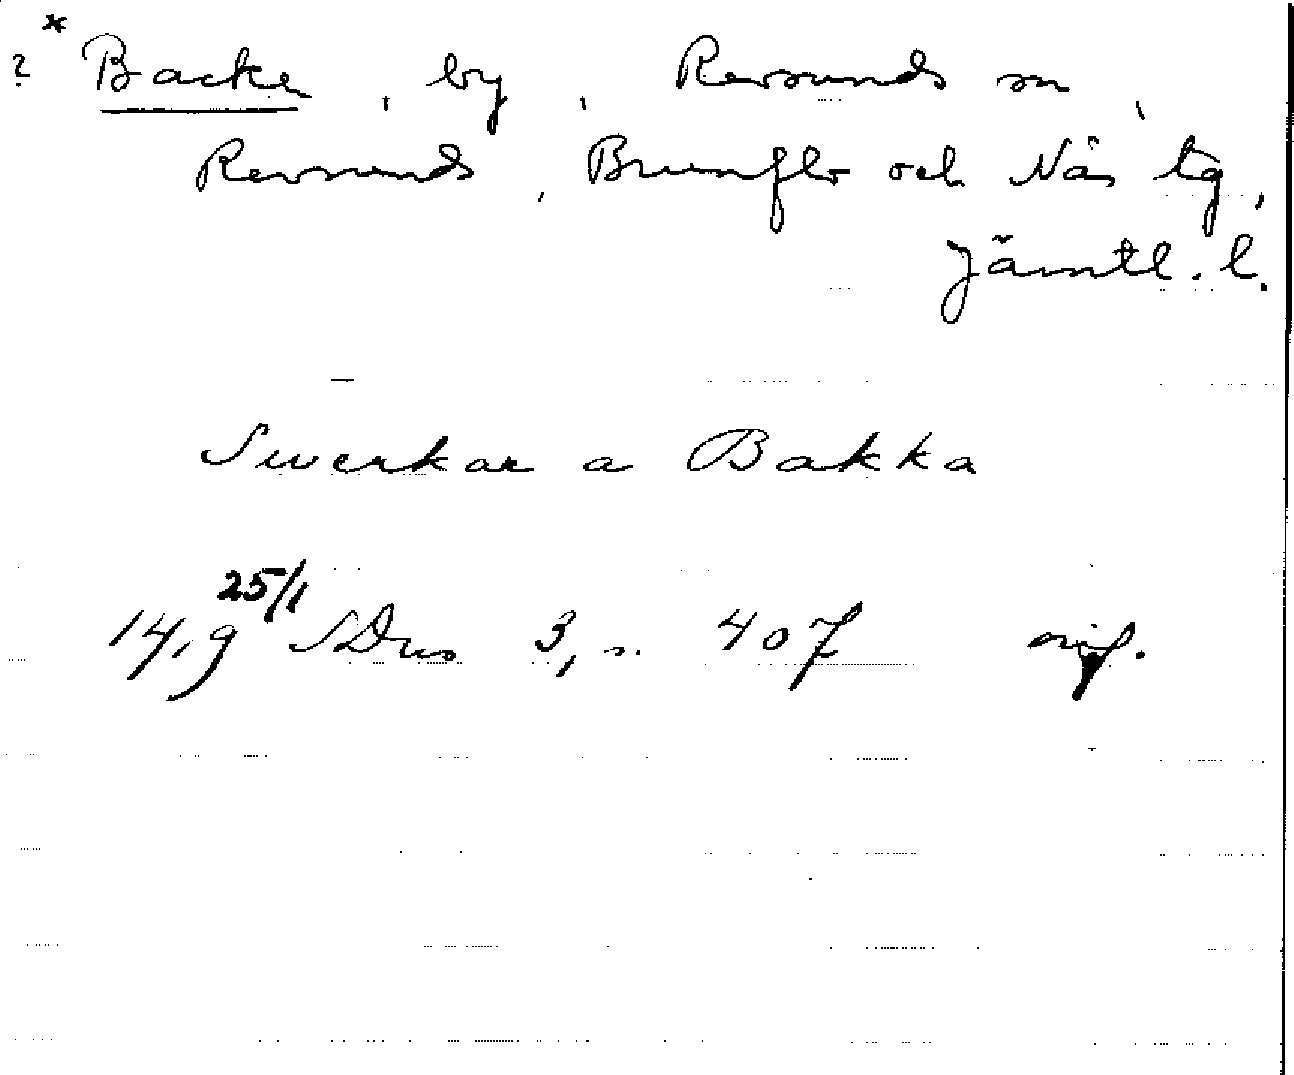 ? * Backe, by, Revsunds sn,
Revsunds, Brunflo och Näs tg,
Jämtl. l.
Swerkar a Bakka
25/1
14.9 SDns 3, s. 407